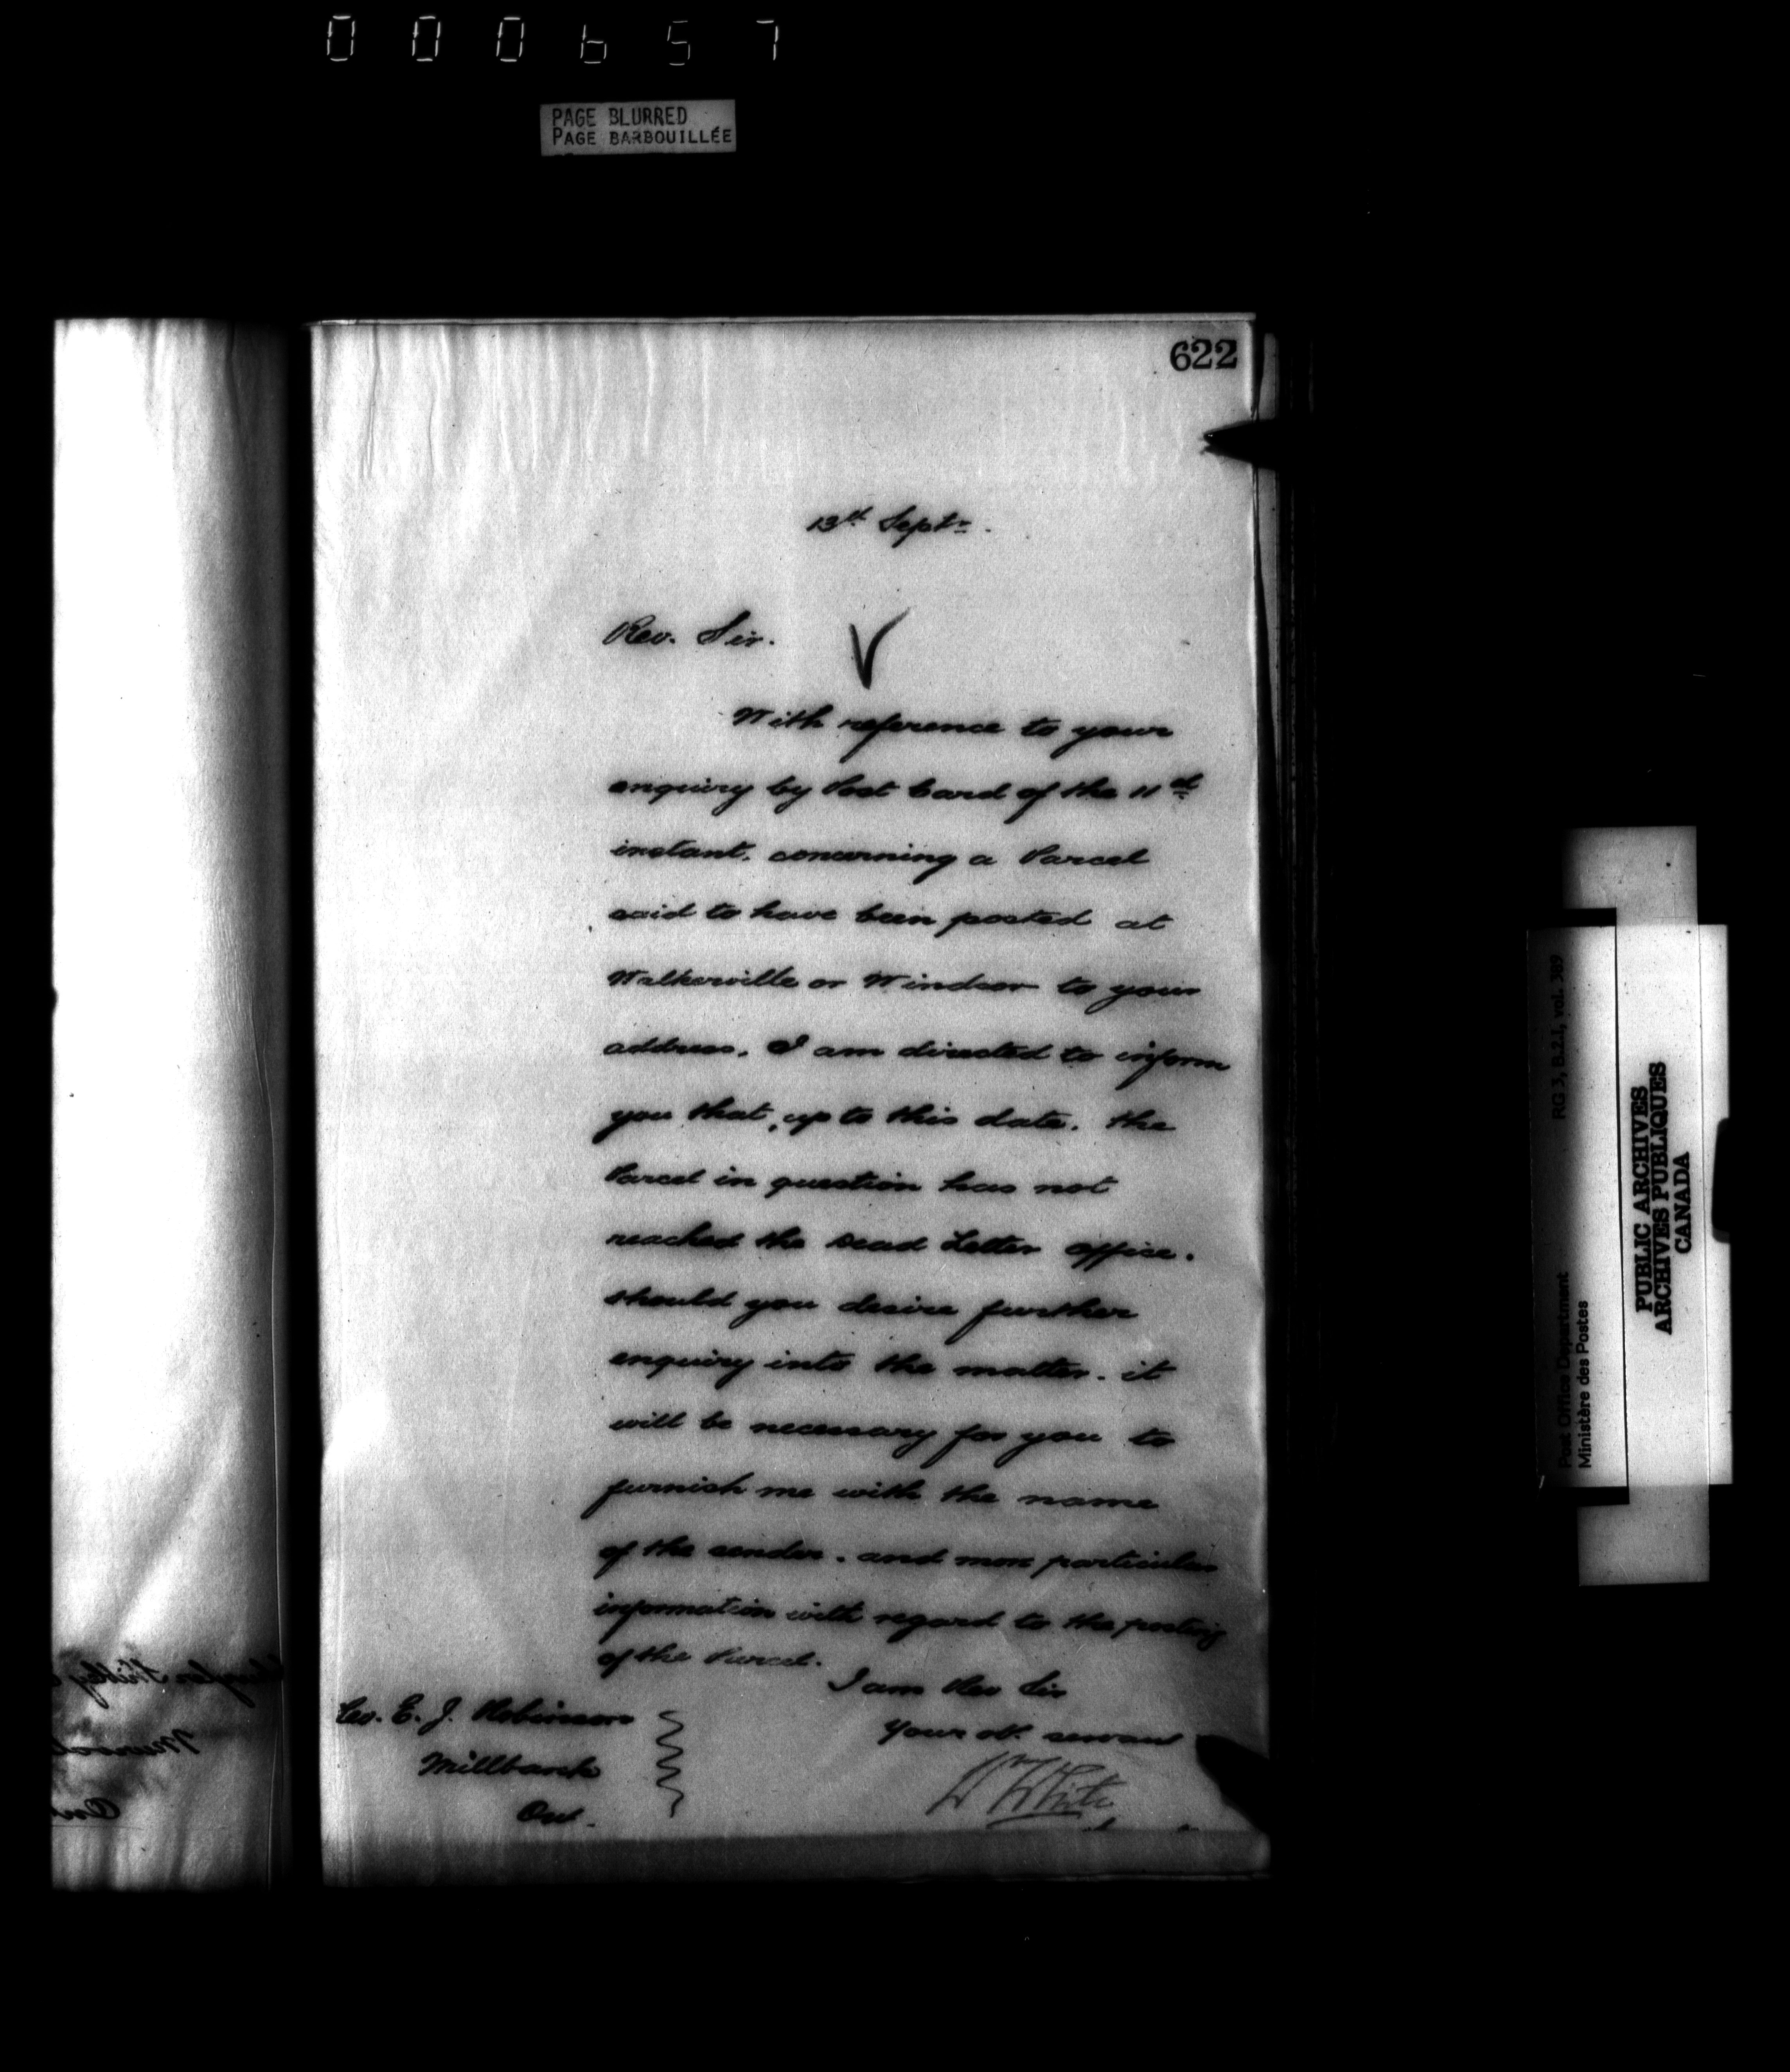 000657
PAGE BLURRED
PAGE BARBOUILLÉE
622
13th Septr.
Rev. Sir.
With reference to your
enquiry by Post Card of the 11th
instant, concerning a Parcel
said to have been posted at
Walkerville or Windsor to your
address, I am directed to inform
you that, up to this date, the
Parcel in question has not
reached the Dead Letter Office.
Should you desire further
enquiry into the matter. it
will be necessary for you to
furnish me with the name
of the sender. and more particular
information with regard to the posting
of the Parcel.
I am Rev Sir
Your ob. servant
W White
Rev. E. J. Robinson
Millbank
Ont.
RG 3, B.2.1, vol. 389
Post Office Department
Ministère des Postes
PUBLIC ARCHIVES
ARCHIVES PUBLIQUES
CANADA